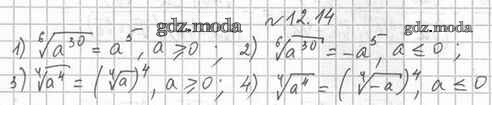 gdz.moda
№12.14
gdz.moda
1) ⁶√a³⁰ = a⁵, a ⩾ 0 ; 2) ⁶√a³⁰ = -a⁵, a ≤ 0 ;
3) ⁴√a⁴ = (⁴√a)⁴, a ⩾ 0; 4) ⁴√a⁴ = (⁴√-a)⁴, a ≤ 0